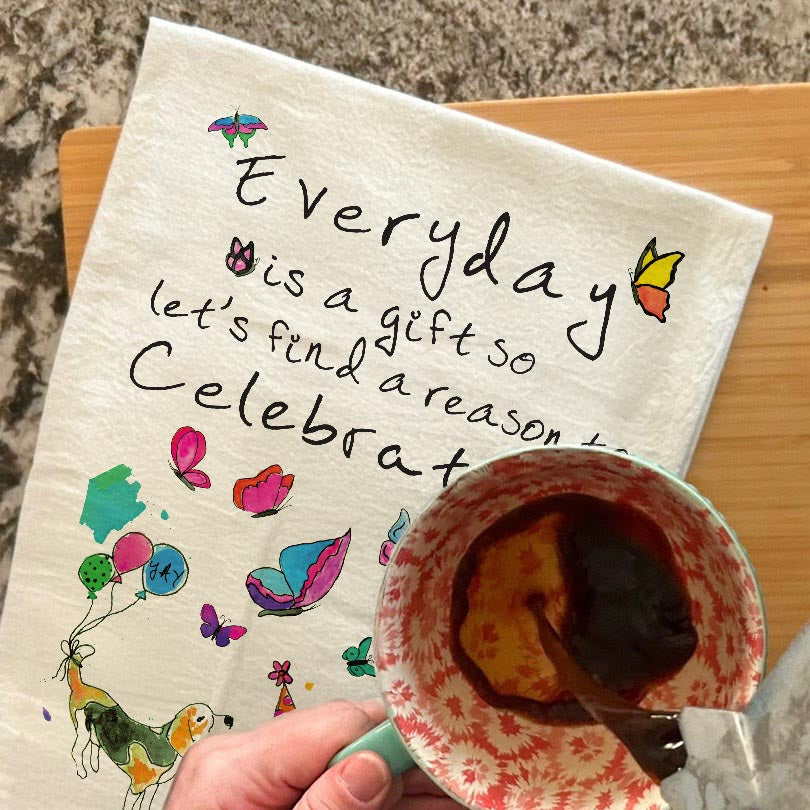 Everyday
is a gift so
let's find a reason to
Celebrat
YAY